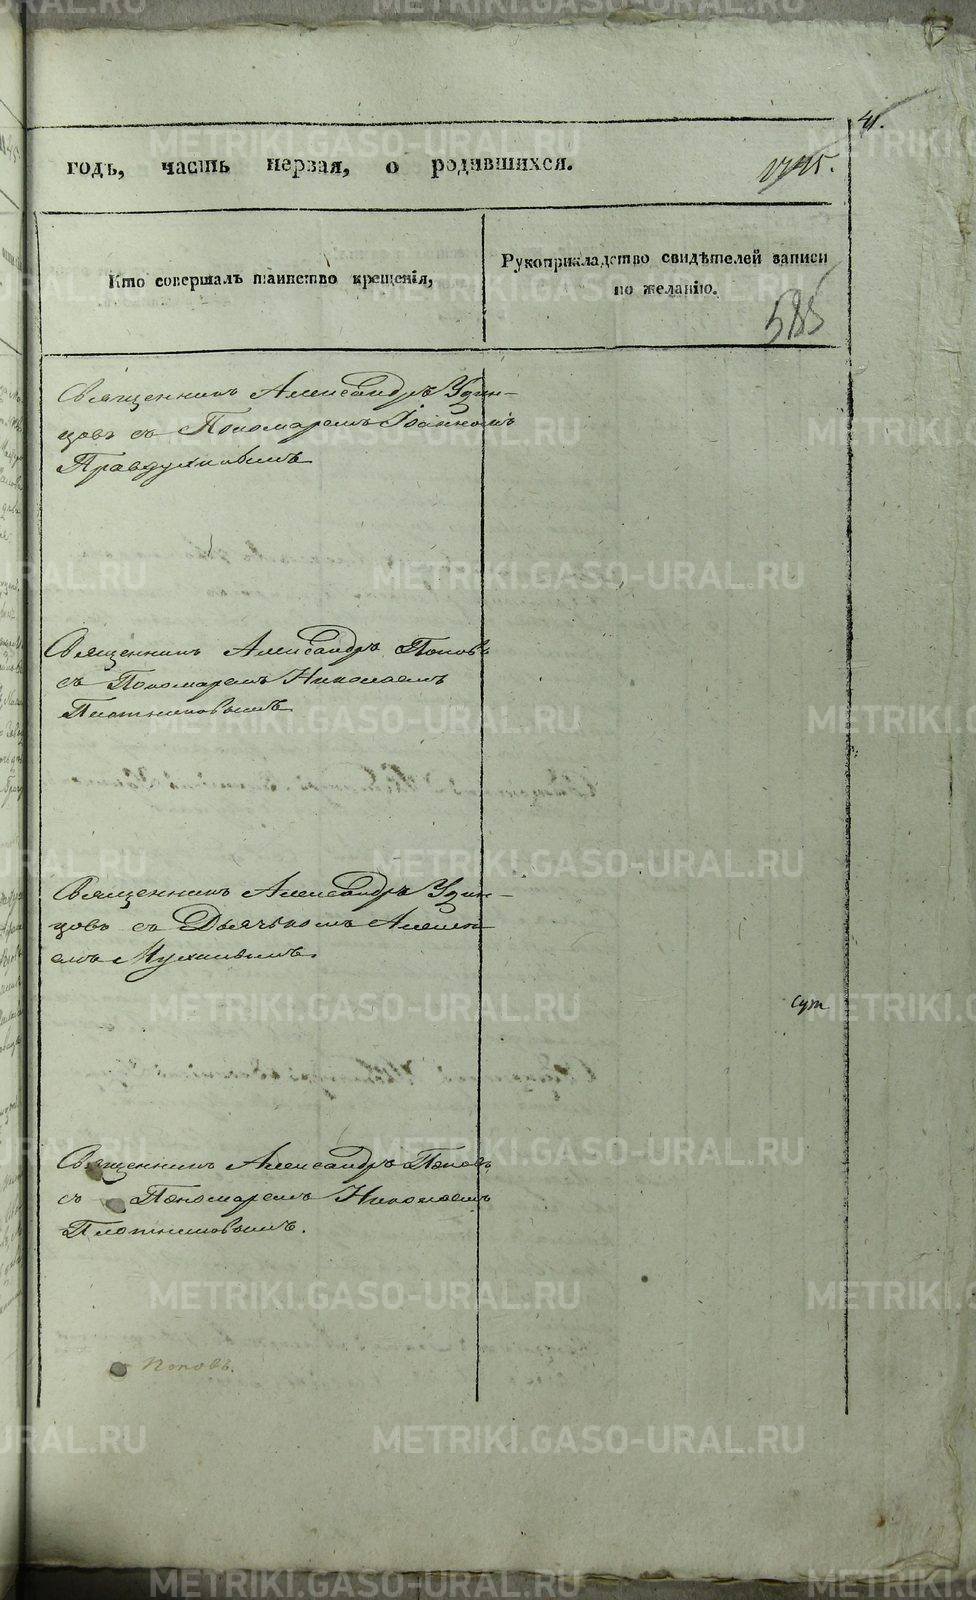 41.
годъ, часть первая, о родившихся.
Кто совершалъ таинство крещенія,
Рукоприкладство свидѣтелей записи
по желанію.
585
Священникъ Александръ Удин-
цовъ съ Пономаремъ Іоанномъ
Правдухинымъ
Священникъ Александръ Поповъ
съ Пономаремъ Николаемъ
Плотниковымъ
Священникъ Александръ Удин-
цовъ съ Дьячькомъ Алексѣ
емъ
Священникъ Александръ Поповъ
съ Пономаремъ Николаемъ
Плотниковымъ.
Поповъ.
METRIKI.GASO-URAL.RU